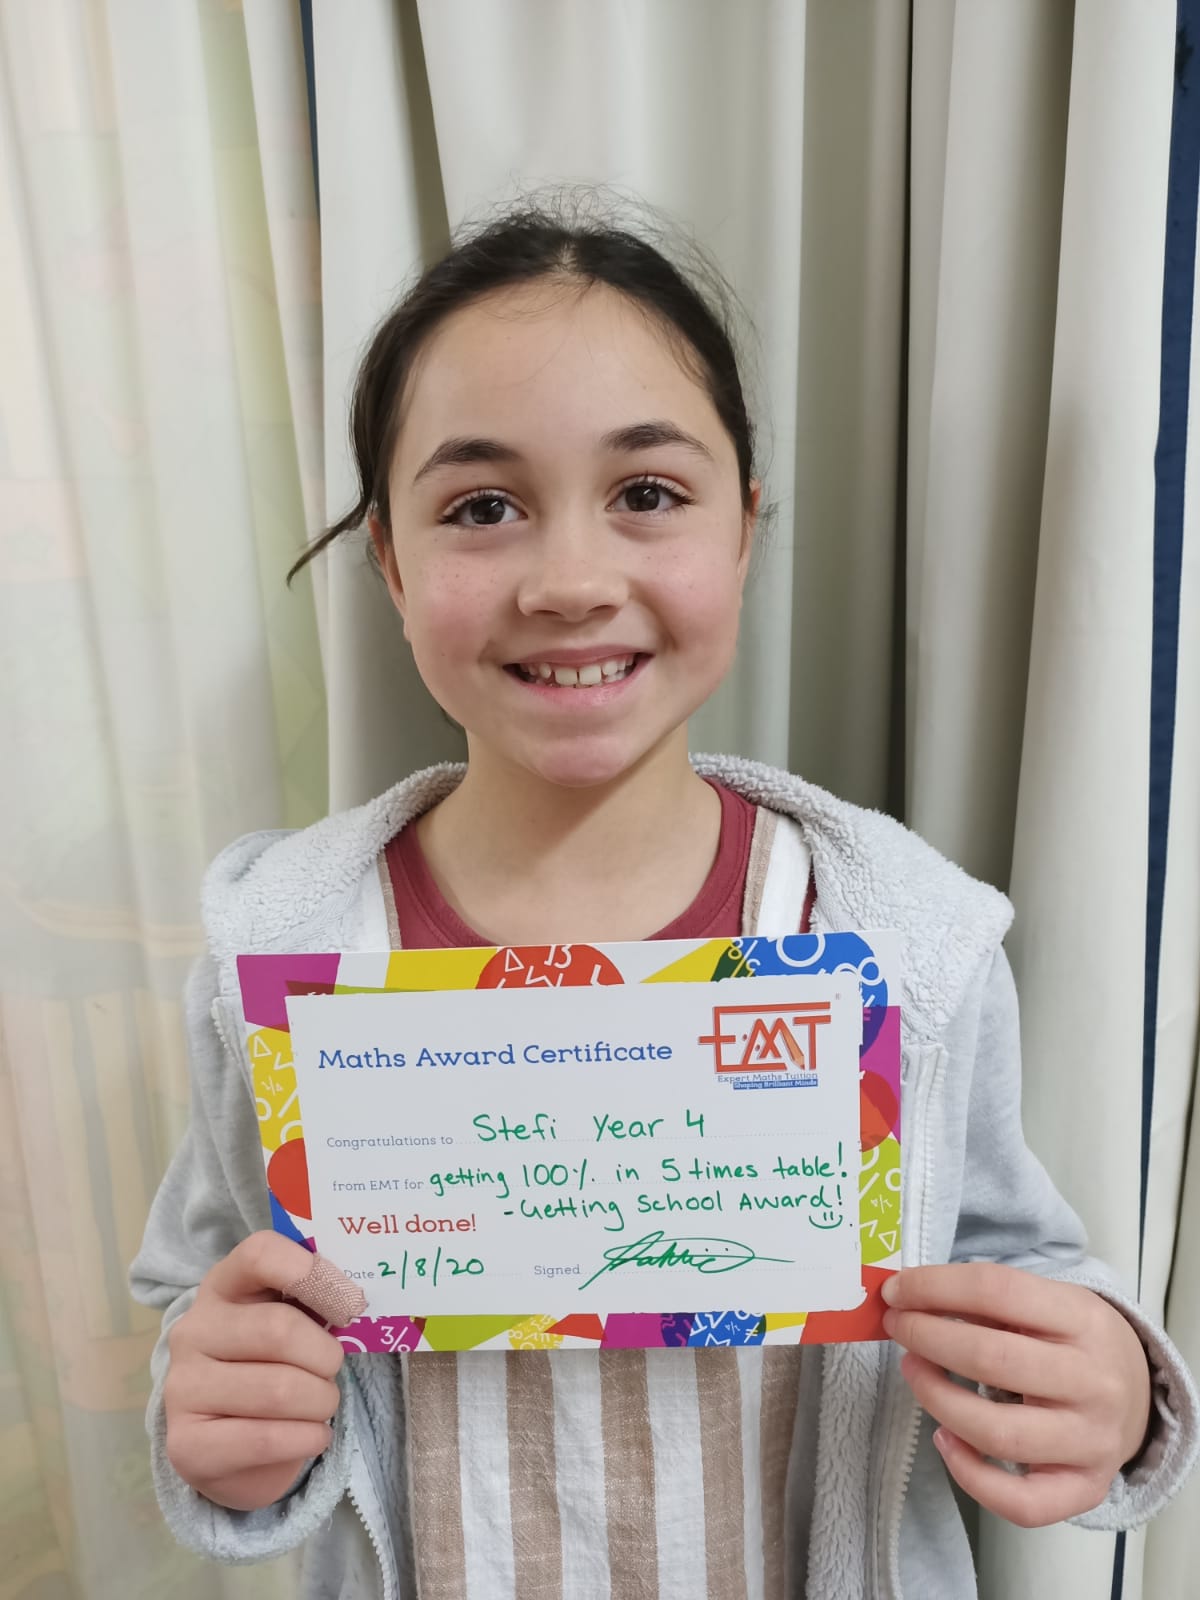 EMT
®
Maths Award Certificate
Expert Maths Tuition
Shaping Brilliant Minds
Congratulations to Stefi Year 4
from EMT for getting 100% in 5 times table!
- Getting School Award!
Well done!
Date 2/8/20 Signed